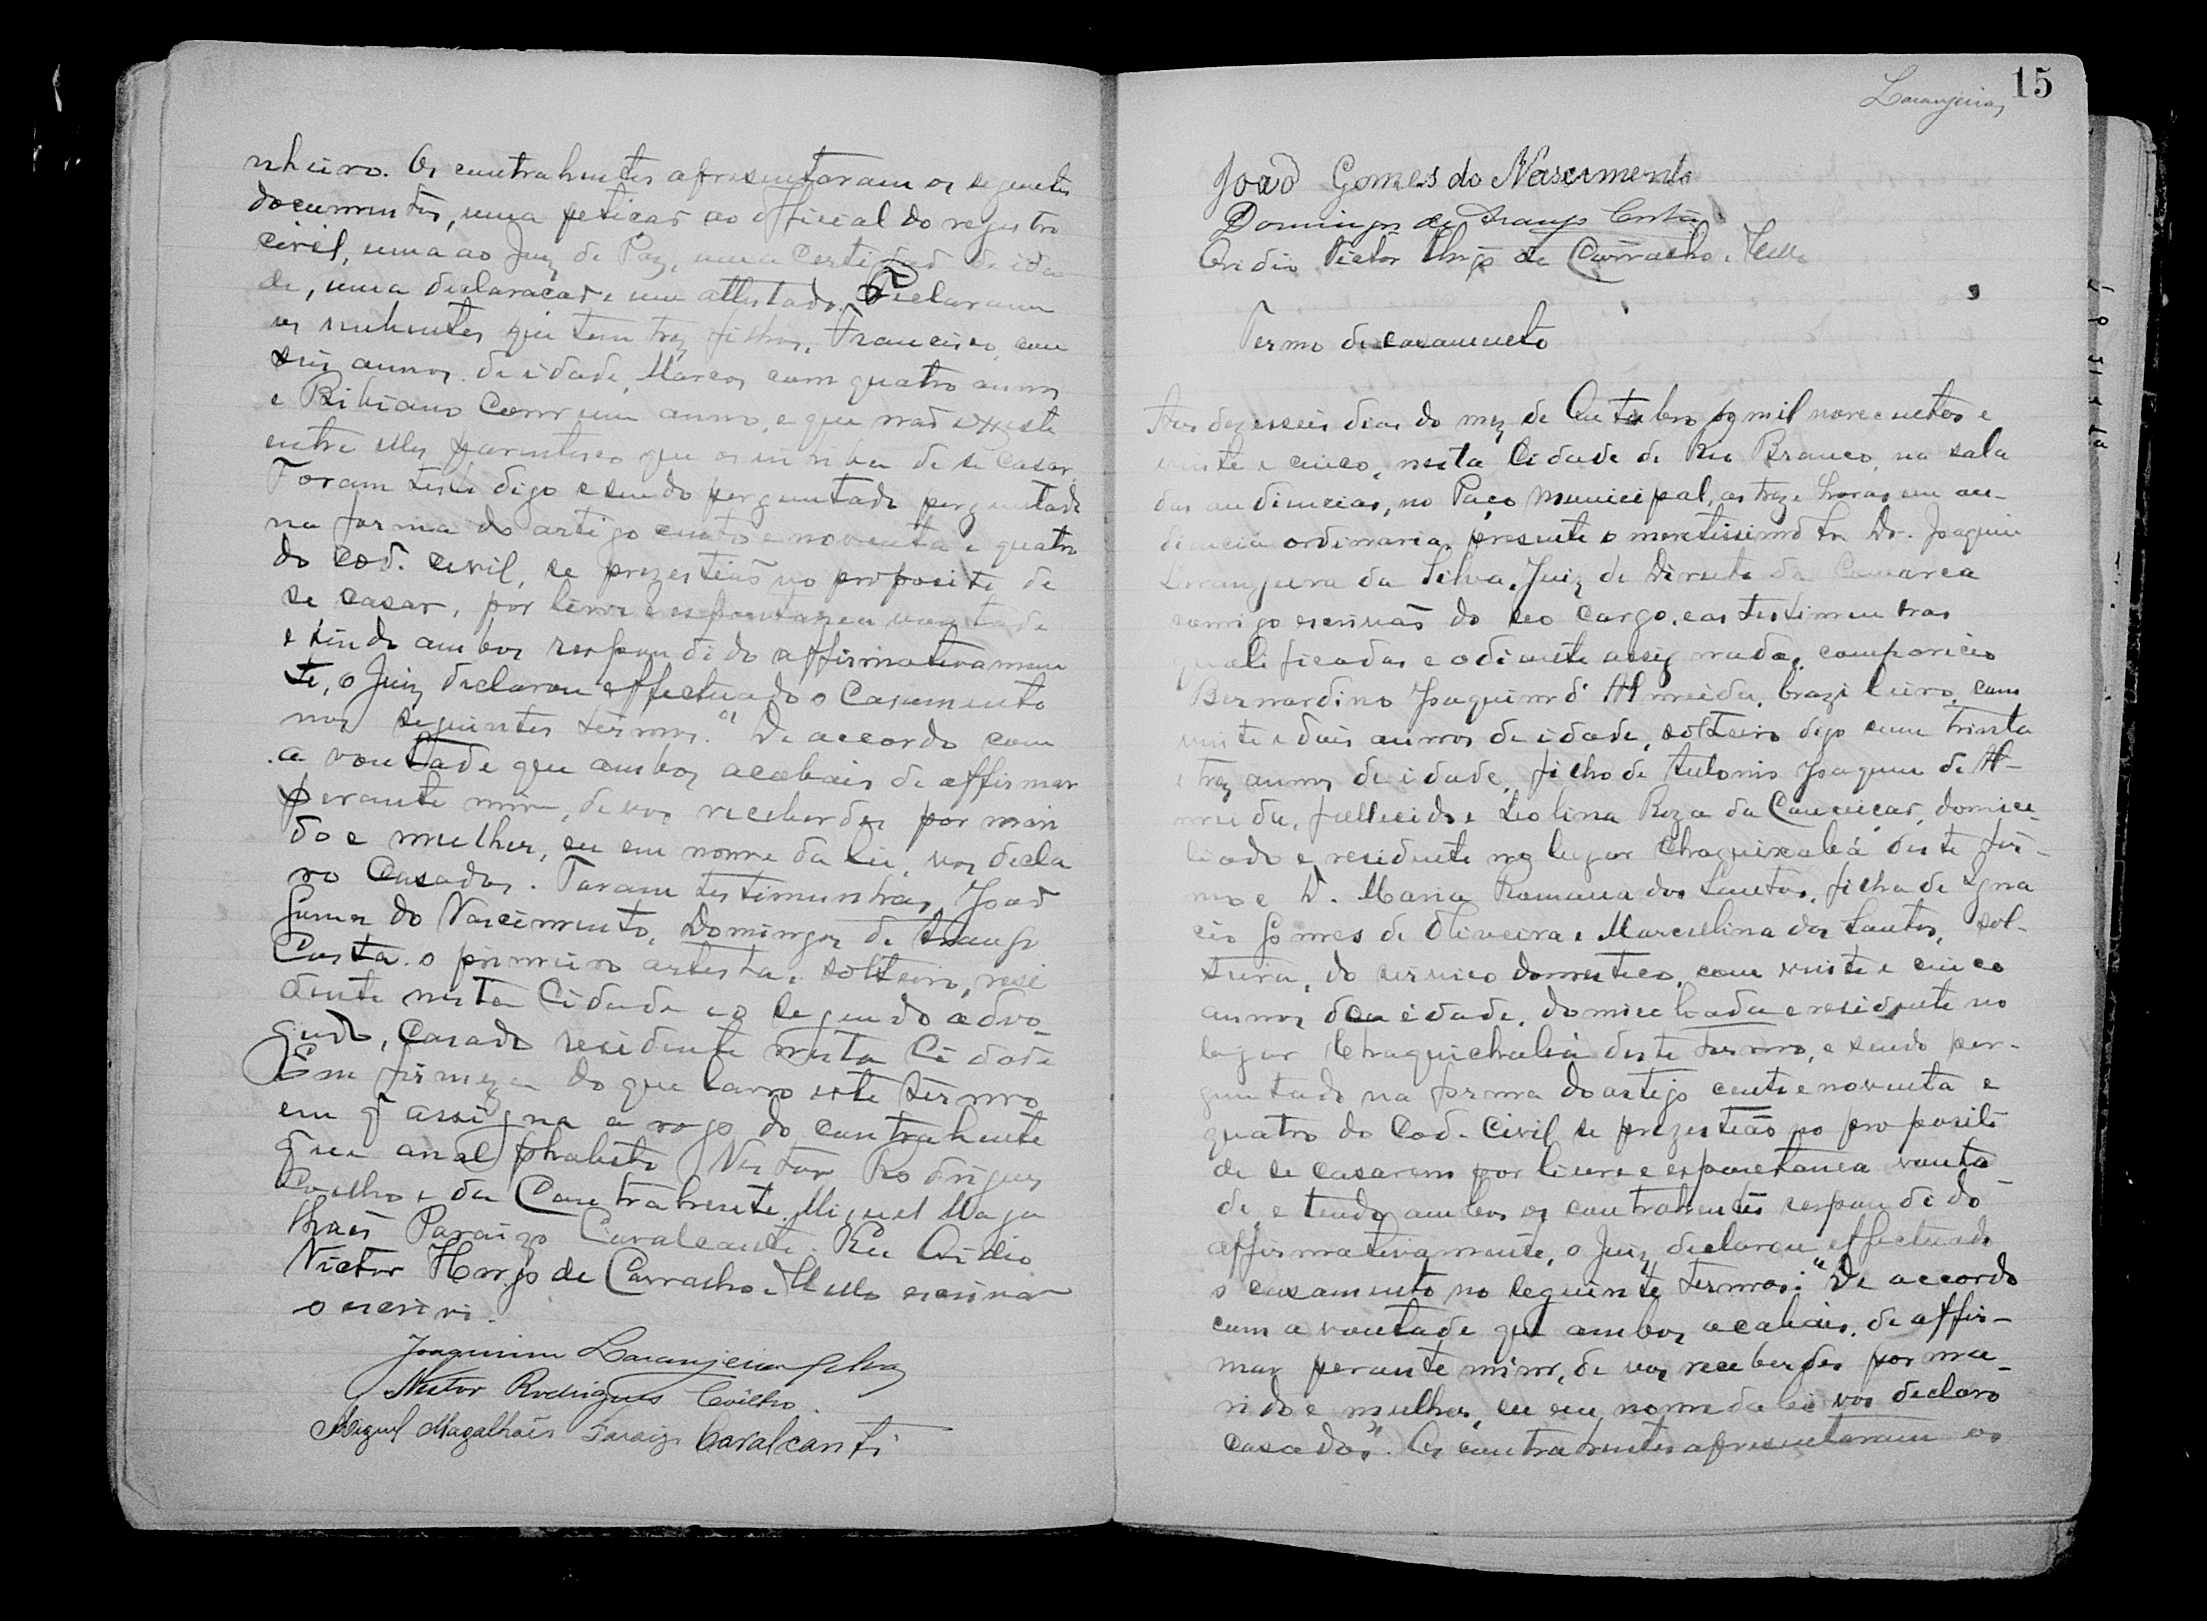 nheiro. Os contrahentes apresentaram os seguintes
documentos, uma peticaõ ao official do registro
civil, uma ao Juiz de Paz, uma Certidaõ de ida
de, uma declaracaõ e um attestado. Declararam
os nubentes que tem trez filhos, Francisco, com
seis annos de idade, Marcos com quatro annos
e Bibiano Com um anno, e que naõ existe
entre elles parentesco que os iniba de se casar.
Foram test digo e sendo perguntado perguntado
na forma do artigo cento e noventa e quatro
do Cod. Civil, se prezestiaõ no proposito de
se casar, por livre e espontanea vontade
e tendo ambos respondido affirmativamen
te, o Juiz declarou effectuado o Casamento
nos seguintes termos. "De accordo com
a vontade que ambos acabais de affirmar
perante mim, de vos receberdes por mari
do e mulher, eu em nome da lei, vos decla
ro Casados. Foram testimunhas, Joaõ
Gomes do Nascimento, Domingos de Araujo
Costa. o primeiro artista, solteiro, resi
dente nesta Cidade e o segundo advo-
gado, Casado residente nesta Cidade
Em firmeza do que lavro este termo
em q assigna a rogo do contrahente
que é analphabeto Nestor Rodrigues
Coelho e da Contrahente Miguel Maga
lhaẽs Paraizo Cavalcante. Eu Ovidio
Victor Hugo de Carvalho e Mello escrivaõ
o escrivi.
Joaquim Laranjeira Silva
Nestor Rodrigues Coêlho.
Miguel Magalhães Paraizo Cavalcanti
15
Laranjeira
João Gomes do Nascimento
Domingos de Araujo Costa
Ovidio Victor Hugo de Carvalho e Mello
Termo de casamento
Aos dezesseis dias do mez de Outubro de mil novecentos e
vinte e cinco, nesta Cidade de Rio Branco, na sala
das audiencias, no Paço Municipal, as treze horas em au-
diencia ordinaria, presente o meretissimo Snr Dr. Joaquim
Laranjeira da Silva, Juiz de Direito da Comarca
comigo escrivaõ do seo Cargo, e as testimunhas
qualificadas e adiante assignadas, compareceo
Bernardino Joaquim d'Almeida, brazileiro, com
vinte e dois annos de idade, solteiro digo com trinta
e trez annos de idade, filho de Antonio Joaquim de Al-
meida, fallecido e Leolina Roza da Conceicaõ, domici-
liado e residente no lugar Choquixabá deste ter-
mo e D. Maria Romana dos Santos, filha de Igna
cio Gomes de Oliveira e Marcellina dos Santos, sol-
teira, do servico domestico, com vinte e cinco
annos de idade, domiciliada e residente no
lugar Choquichabá deste termo, e sendo per-
guntado na forma do artigo cento e noventa e
quatro do Cod. Civil se prezestiaõ no proposito
de se casarem por livre e espontanea vonta
de, e tendo ambos os contrahentes respondido
affirmativamente, o Juiz declarou effectuado
o casamento no seguinte termos: "De accordo
com a vontade que ambos acabais, de affir-
mar perante mim, de vos receberdes por ma-
rido e mulher, eu em nome da lei vos declaro
casados". Os contrahentes apresentaram os